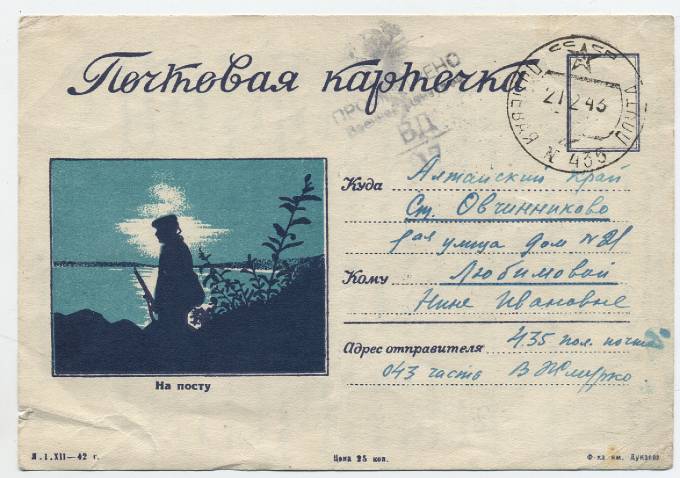 Почтовая карточка
ПРОСМОТРЕНО
Военной Цензурой
ВД
21 2 43
N 435
Куда Алтайский край
Ст. Овчинниково
1ая улица дом №21
Кому Любимовой
Нине Ивановне
Адрес отправителя 435 пол. почта
043 часть В Жмурко
На посту
Л.1.XII—42 г.
Цена 25 коп.
Ф-ка им. Дунаева